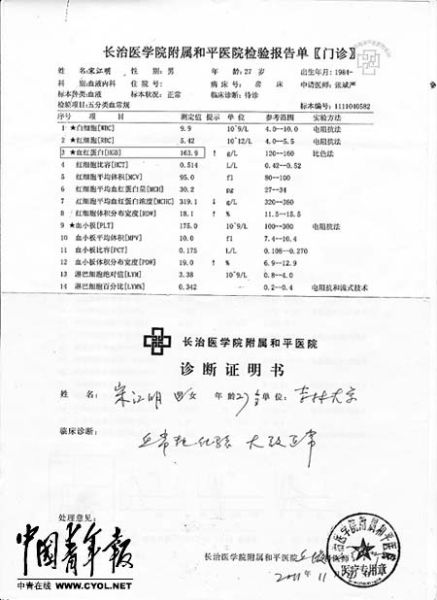 长治医学院附属和平医院检验报告单〖门诊〗
姓 名:宋江明 性 别:男 年 龄:27岁 出生年月:1984-
科 别:血液内科 住院号: 病床号: 房 床 申请医师:张斌严
标本种类:血液 标本状况:正常 临床诊断:待诊
检验项目:五分类血常规 标本编号:1111040582
序号 项 目 测定值 提示 单 位 参考范围 实验方法
1 ★白细胞[WBC] 9.9 10^9/L 4.0--10.0 电阻抗法
2 ★红细胞[RBC] 5.42 10^12/L 4.0--5.5 电阻抗法
3 ★血红蛋白[HGB] 163.9 ↑ g/L 120--160 比色法
4 红细胞比容[HCT] 0.514 L/L 0.42--0.52
5 红细胞平均体积[MCV] 95.0 fl 80--100
6 红细胞平均血红蛋白量[MCH] 30.2 pg 27--34
7 红细胞平均血红蛋白浓度[MCHC] 319.1 ↓ g/L 320--360
8 红细胞体积分布宽度[RDW] 18.1 ↑ % 11.5--15.5
9 ★血小板[PLT] 175.0 10^9/L 100--300 电阻抗法
10 血小板平均体积[MPV] 10.0 fl 7.4--10.4
11 血小板比容[PCT] 0.175 L/L 0.108--0.270
12 血小板体积分布宽度[PDW] 19.0 ↑ % 6.9--12.9
13 淋巴细胞绝对值[LYM] 3.38 10^9/L 0.8--4.0
14 淋巴细胞百分比[LYMN] 0.342 0.2--0.4 电阻抗和流式技术
长治医学院附属和平医院
诊断证明书
姓 名: 宋江明 男女 年龄27岁 单位: 吉林大学
临床诊断:
血常规化验 大致正常
处理意见:
长治医学院附属和平医院
2011 11
长治医学院附属和平医院
医疗专用章
中国青年报
中青在线 WWW.CYOL.NET